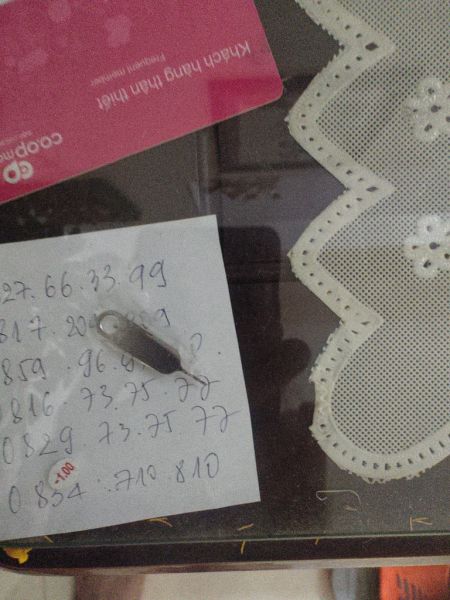 Khách hàng thân thiết
Frequent member
co.opma
27.66.33.99
817.20
859.96.
0816.73.75.77
0829.73.75.77
-1.00
0.834.710.810